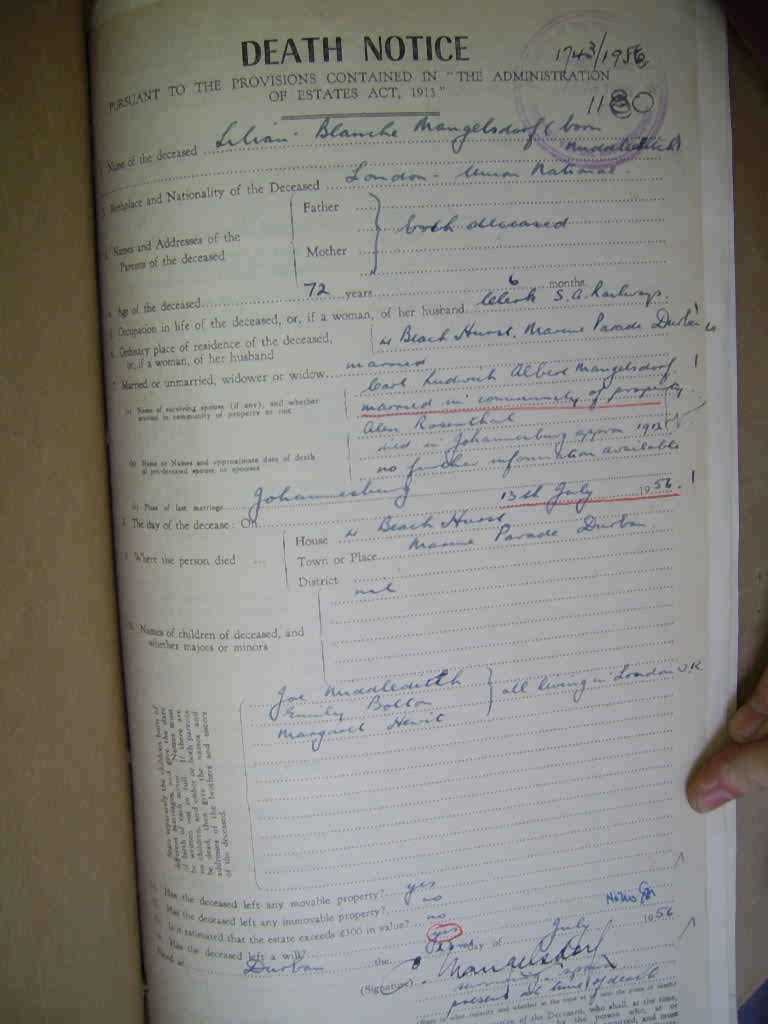 DEATH NOTICE
1743/1956
PURSUANT TO THE PROVISIONS CONTAINED IN "THE ADMINISTRATION
OF ESTATES ACT, 1913"
1180
Name of the deceased Lilian Blanche Mangelsdorf (born
Middleditch)
Birthplace and Nationality of the Deceased London - Union National
Names and Addresses of the
Parents of the deceased
Father
both deceased
Mother
Age of the deceased 72 years 6 months
Occupation in life of the deceased, or, if a woman, of her husband Clerk S.A. Railways.
Ordinary place of residence of the deceased,
or, if a woman, of her husband
Beach Hurst, Marine Parade Durban
Married or unmarried, widower or widow married
(a) Name of surviving spouse (if any), and whether
married in community of property or not
Carl Ludwich Albert Mangelsdorf
married in community of property
(b) Name or Names and approximate date of death
of pre-deceased spouse or spouses
Alex Rosenthal
died in Johannesburg approx 1912
no further information available
(c) Place of last marriage Johannesburg
The day of the decease: On 13th July 1956.
Where the person died
House Beach Hurst
Town or Place Marine Parade Durban
District
Names of children of deceased, and
whether majors or minors
nil
State separately the children born of
different Marriages, and give the date
of birth of each minor. Names must
be written out in full. If there are
no children, and either or both parents
be dead, then give the names and
addresses of the brothers and sisters
of the deceased.
Joe Middleditch
Emily Bolton
Margaret Hewit
all living in London U.K
Has the deceased left any movable property? yes
Has the deceased left any immovable property? no
Is it estimated that the estate exceeds £300 in value? no
Has the deceased left a will? yes
Dated at Durban the day of July 1956
(Signature) Mangelsdorf
surviving spouse
present at time of death